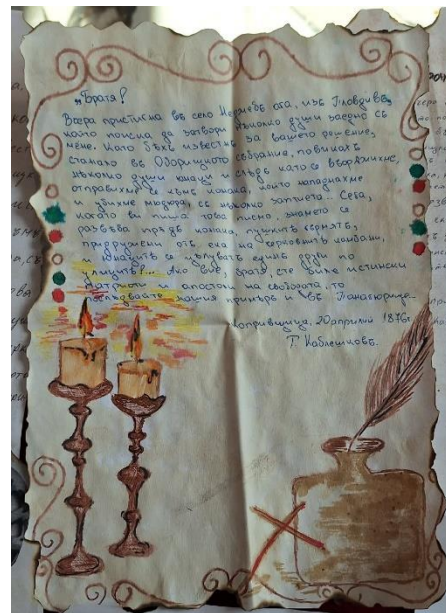 „Братя!
Вчера пристигна въ село Неджебъ ага, изъ Пловдивъ,
който поиска да затвори нѣколко души заедно съ
мене. Като бѣхъ известенъ за вашето решение,
станало въ Оборищкото събрание, повикахъ
нѣколко души юнаци и следъ като се въоражихме,
отправихме се къмъ конака, който нападнахме
и убихме мюдюра, съ нѣколко заптиета... Сега,
когато ви пиша това писмо, знамето се
развѣва прѣдъ конака, пушкитѣ гърмятъ,
придружени отъ ека на черковнитѣ камбани,
и юнацитѣ се цѣлуватъ единъ други по
улицитѣ!... Ако вие, братя, сте биле истински
патриоти и апостоли на свободата, то
последвайте нашия примѣръ и въ Панагюрище...
Копривщица, 20 априлий 1876г.
Т. Каблешковъ.